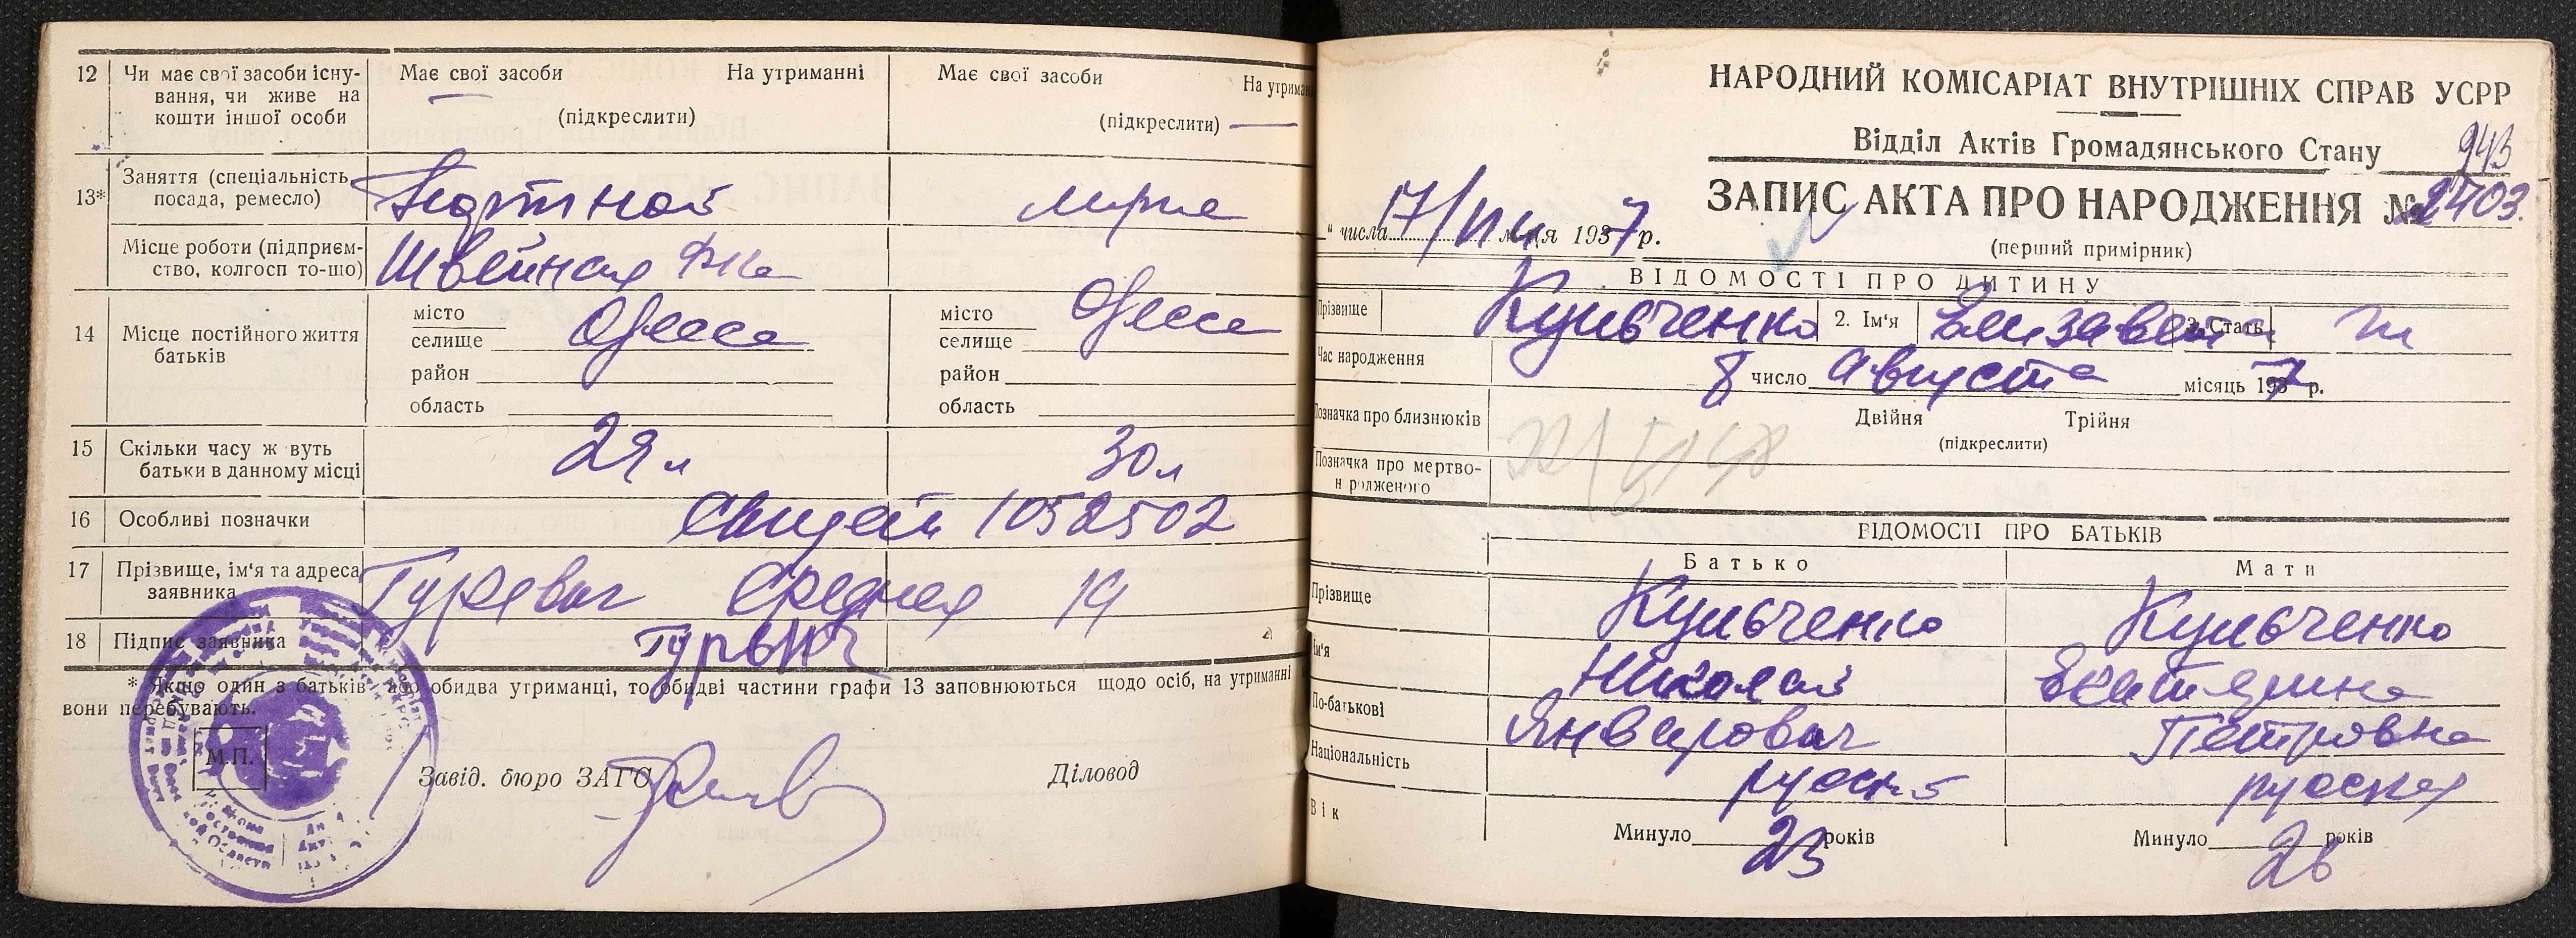 12 Чи має свої засоби існу-
вання, чи живе на
кошти іншої особи
Має свої засоби На утриманні
(підкреслити)
Має свої засоби На утриман
(підкреслити)
13* Заняття (спеціальність,
посада, ремесло)
Портной
Місце роботи (підприєм-
ство, колгосп то-що)
Швейная
14 Місце постійного життя
батьків
місто
селище Одесса
район
область
місто Одесса
селище
район
область
15 Скільки часу ж вуть
батьки в данному місці
29 л 30 л
16 Особливі позначки
1052502
17 Прізвище, ім'я та адреса
заявника
Гуревич Средняя 19
18 Підпис заявника
Гурвич
* Якщо один з батьків або обидва утриманці, то обидві частини графи 13 заповнюються щодо осіб, на утриманні
вони перебувають.
М.П.
Завід. бюро ЗАГС
Діловод
НАРОДНИЙ КОМІСАРІАТ ВНУТРІШНІХ СПРАВ УСРР
Відділ Актів Громадянського Стану
943
ЗАПИС АКТА ПРО НАРОДЖЕННЯ № 2403.
" числа 17/ м-ця 1937 р.
(перший примірник)
ВІДОМОСТІ ПРО ДИТИНУ
Прізвище Кульченко 2. Ім'я Елизавета 3. Стать ж
Час народження 8 число Августа місяць 1937 р.
Позначка про близнюків Двійня Трійня
(підкреслити)
Позначка про мертво-
н родженого
ВІДОМОСТІ ПРО БАТЬКІВ
Батько Мати
Прізвище Кульченко Кульченко
Ім'я Николай Екатерина
По-батькові Январович Петровна
Національність русский русская
Вік Минуло 23 років Минуло 26 років